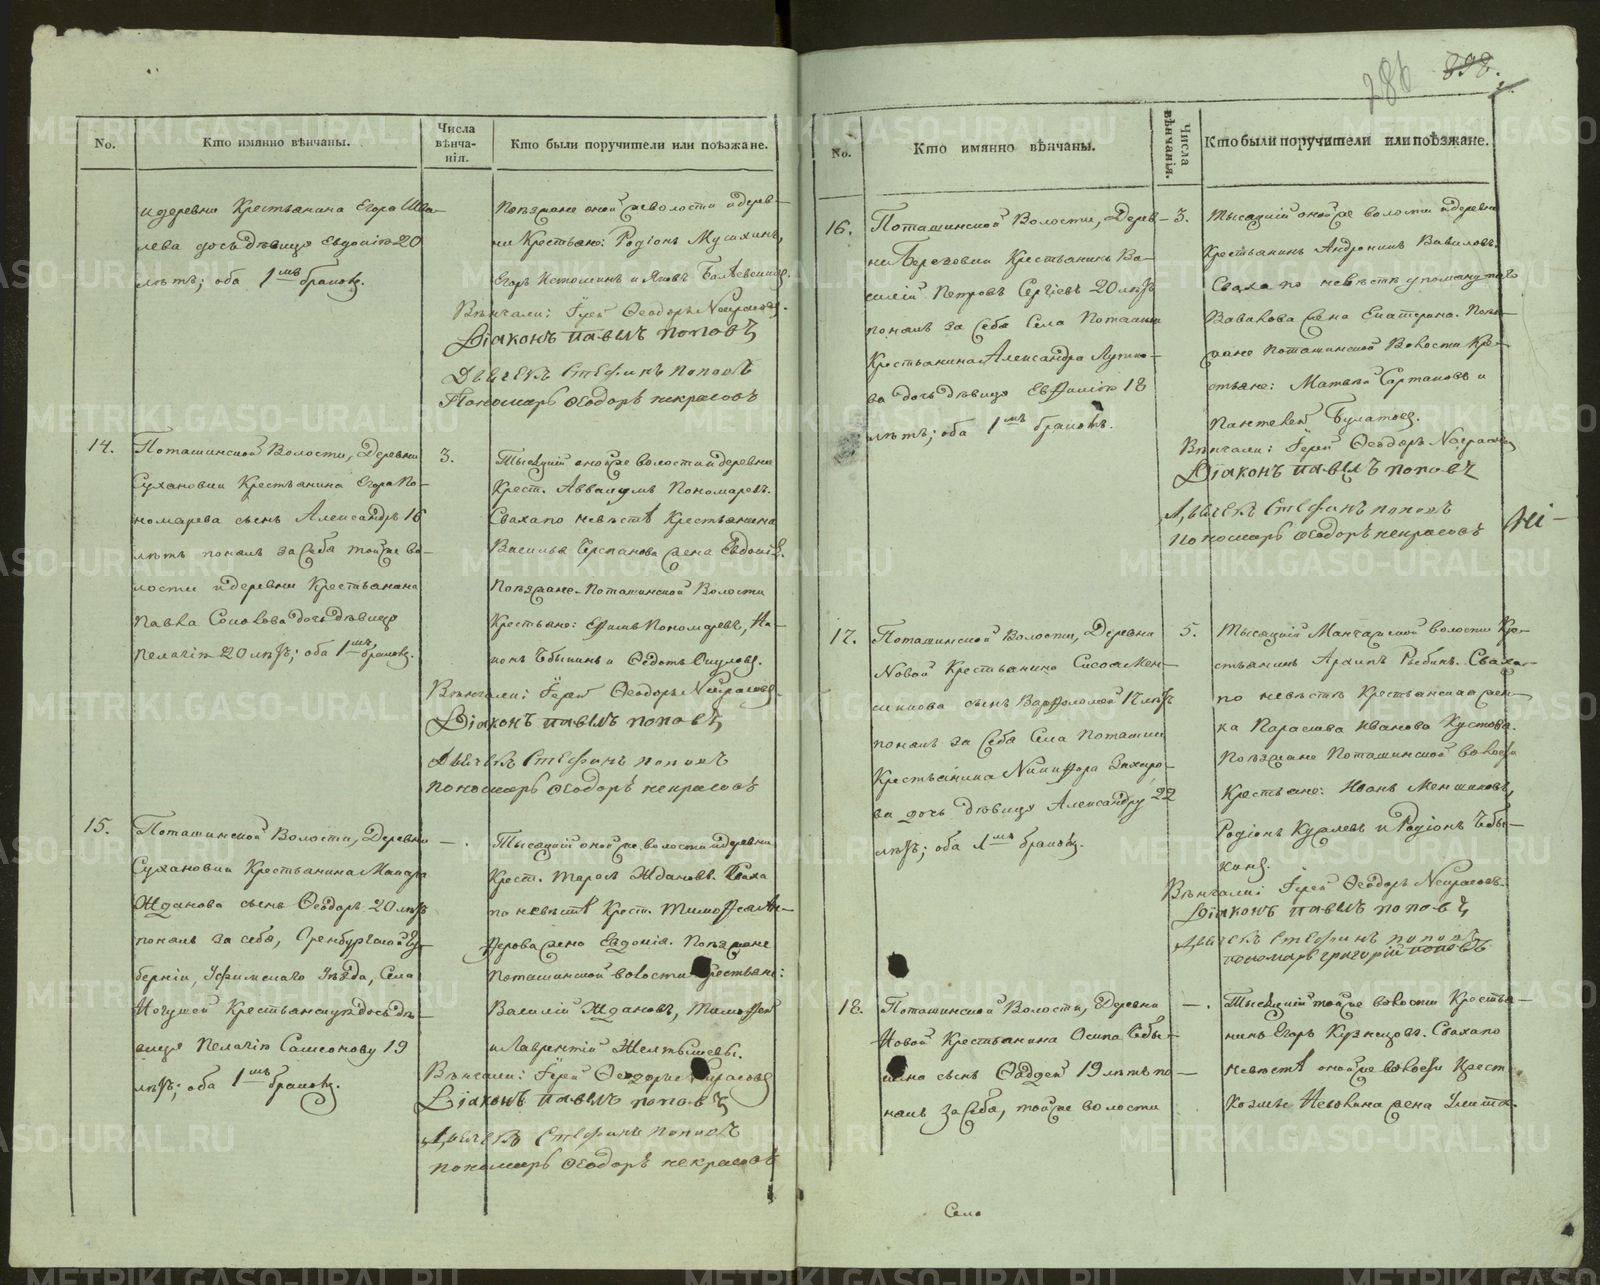 286 898.
No.
Кто имянно вѣнчаны.
Числа вѣнча-нія.
Кто были поручители или поѣзжане.
и деревни Крестьянина Егора
лева дочь дѣвицу Евдокію 20
лѣтъ; оба 1мъ бракомъ.
Поѣзжане оной же волости и дерев-
ни Крестьяне: Родіонъ Мусихинъ,
Егоръ Истоминъ и Яковъ
Вѣнчали: Іерей Ѳеодоръ Некрасовъ.
Діаконъ Павелъ Поповъ
Дьячекъ Стефанъ Поповъ
Пономарь Ѳеодоръ Некрасовъ
14.
Поташинской Волости, Деревни
Сухановки Крестьянина Егора По-
номарева сынъ Александръ 18
лѣтъ понялъ за себя тойже во-
лости и деревни Крестьянина
Павла Соколова дочь дѣвицу
Пелагію 20 лѣтъ; оба 1мъ бракомъ.
3.
Тысяцкій онойже волости и деревни
Крест. Аввакумъ Пономаревъ.
Сваха по невѣстѣ Крестьянина
Василья жена Евдокія.
Поѣзжане Поташинской Волости
Крестьяне: Ефимъ Пономаревъ, Ни-
конъ Чебыкинъ и Ѳедотъ Окуловъ.
Вѣнчали: Іерей Ѳеодоръ Некрасовъ.
Діаконъ Павелъ Поповъ
Дьячекъ Стефанъ Поповъ
Пономарь Ѳеодоръ Некрасовъ
15.
Поташинской Волости, Деревни
Сухановки Крестьянина Макара
Жданова сынъ Ѳеодоръ 20 лѣтъ
понялъ за себя, Оренбургской Гу-
берніи, Уфимскаго Уѣзда, Села
Ногушей Крестьянскую дочь дѣ-
вицу Пелагію Самсонову 19
лѣтъ; оба 1мъ бракомъ.
— .
Тысяцкій онойже волости и деревни
Крест. Тарасъ Ждановъ. Сваха
по невѣстѣ Крест. Тимоѳея Ан-
ферова жена Евдокія. Поѣзжане
Поташинской волости Крестьяне:
Василій Ждановъ, Тимоѳей
и Лаврентій Желтышевы.
Вѣнчали: Іерей Ѳеодоръ Некрасовъ
Діаконъ Павелъ Поповъ
Дьячекъ Стефанъ Поповъ
Пономарь Ѳеодоръ Некрасовъ
No.
Кто имянно вѣнчаны.
Числа вѣнчанія.
Кто были поручители или поѣзжане.
16.
Поташинской Волости, Дерев-
ни Березовки Крестьянинъ Ва-
силій Петровъ Сергѣевъ 20 лѣтъ
понялъ за себя Села Поташки
Крестьянина Александра Лутко-
ва дочь дѣвицу Евфимію 18
лѣтъ; оба 1мъ бракомъ.
3.
Тысяцкій онойже волости и деревни
Крестьянинъ Андроникъ Вавиловъ.
Сваха по невѣстѣ упомянутаго
Вавилова жена Екатерина. Поѣз-
жане Поташинской Волости Кре-
стьяне: Матвѣй Сартаковъ и
Пантелей Булатовъ.
Вѣнчали: Іерей Ѳеодоръ Некрасовъ
Діаконъ Павелъ Поповъ
Дьячекъ Стефанъ Поповъ
Пономарь Ѳеодоръ Некрасовъ
17.
Поташинской Волости, Деревни
Новой Крестьянина Сысоя Мен-
шикова сынъ Варѳоломей 17 лѣтъ
понялъ за себя Села Поташки
Крестьянина Никифора Захаро-
ва дочь дѣвицу Александру 22
лѣтъ; оба 1мъ бракомъ.
5.
Тысяцкій Манчажской волости Кре-
стьянинъ Архипъ Рыбинъ. Сваха
по невѣстѣ Крестьянская жен-
ка Парасковья Иванова Кустова.
Поѣзжане Поташинской волости
Крестьяне: Иванъ Меншиковъ,
Родіонъ Куклевъ и Родіонъ Чебы-
кинъ.
Вѣнчали: Іерей Ѳеодоръ Некрасовъ.
Діаконъ Павелъ Поповъ
Дьячекъ Стефанъ Поповъ
Пономарь Григорій Поповъ
18.
Поташинской Волости, Деревни
Новой Крестьянина Осипа Чебы-
кина сынъ Фаддей 19 лѣтъ по-
нялъ за себя, тойже волости
— .
Тысяцкій тойже волости Крестья-
нинъ Егоръ Кузнецовъ. Сваха по
невѣстѣ онойже волости Крест.
Козмы жена Улита.
Села